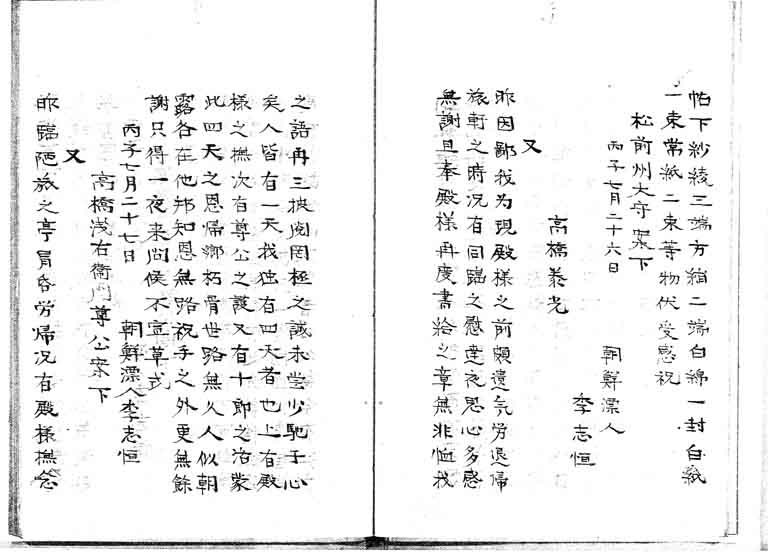 帖下紗綾三端方綃二端白綿一封白紙
一束常紙二束等物伏受感祝
松前州太守 案下
丙子七月二十六日
朝鮮漂人
李志恒
又
高橋
昨因鄙我為現殿様之前頗遺氣労退帰
旅軒之時况有回臨之慰達夜思心多感
無謝且奉殿様再度書給之章無非恤我
之語再三披閲罔極之誠未嘗少馳于心
矣人皆有一天我独有四天者也上有殿
様之撫次有尊公之護又有十郎之治蒙
此四天之恩帰郷朽骨世路無久人似朝
露各在他邦知恩無路祝手之外更無餘
謝只得一夜来問候不宣草式
丙子七月二十七日 朝鮮漂人李志恒
高橋浅右衛門尊公案下
又
昨臨陋旅之亭冒昏労帰况有殿様撫